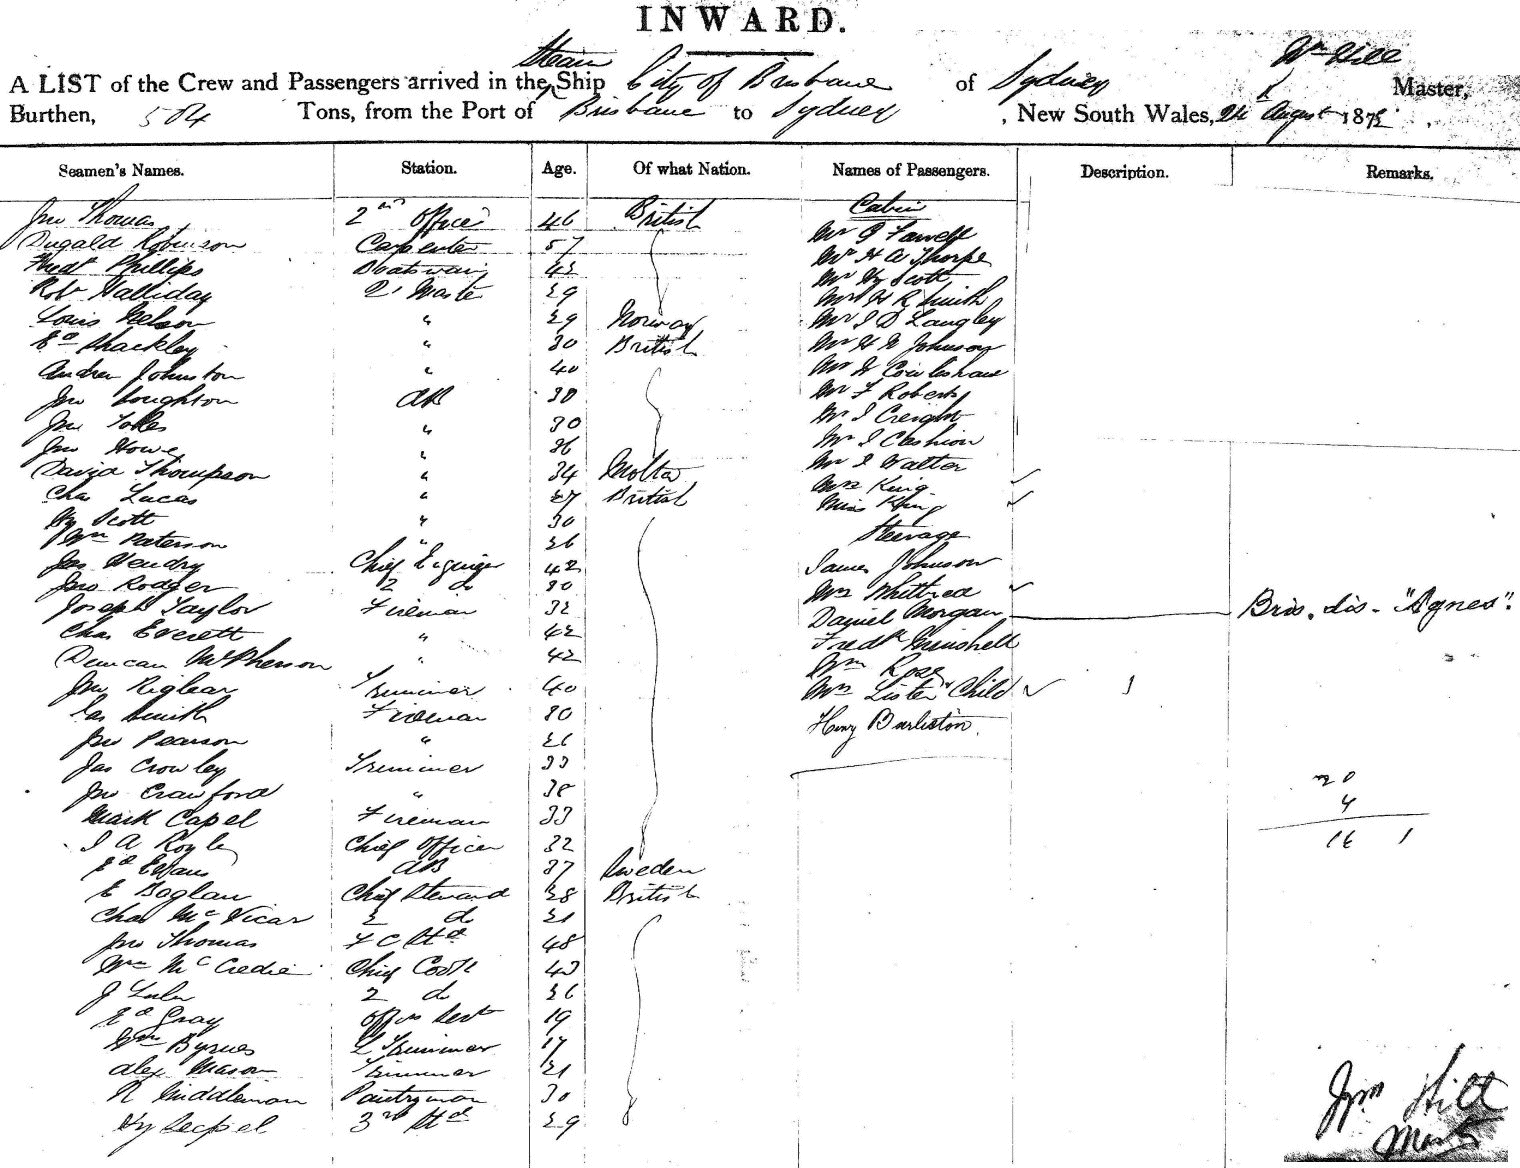 INWARD.
A LIST of the Crew and Passengers arrived in the Steam Ship City of Brisbane of Sydney Wm Hill Master,
Burthen, 504 Tons, from the Port of Brisbane to Sydney, New South Wales, 24 August 187
Seamen's Names. Station. Age. Of what Nation. Names of Passengers. Description. Remarks.
Cabin
Jno Thomas 2nd Officer 46 British
Mr J Farrell
Dugald Robinson Carpenter 57
Mr H A Thorpe
Fredk Phillips Boatswain 42
Mr Hy Scott
Robt Halliday 2r Master 29
Mr H R Smith
Louis Nelson " 29 Norway Mr J D Langley
Ed Shackley " 30 British Mr H N Johnson
Andrew Johnston " 40 Mr W Cowlishaw
Jno Loughton AB 38 Mr F Roberts
Mr J Creight
Jno Toles " 30
Mr J Cashion
Jno Howe " 36
Mr J Walter
David Thompson " 34 Molta
Mrs King
Chas Lucas " 27 British
Miss King
Hy Scott " 30
Steerage
Wm Paterson " 26
Jas Hendry Chief Engineer 42 James Johnson
Jno Rodger 2 do 30 Mrs Whittred
Joseph Taylor Fireman 32 Daniel Morgan Bris. dis- "Agnes".
Chas Everett " 42 Fredk Minshell
Duncan McPherson " 42 Wm Rose
Jno Riglear Trimmer 40 Mrs Lister & Child 1
Jas Smith Fireman 30 Heny Burliston.
Jno Pearson " 26
Jas Crowley Trimmer 33
Jno Crawford " 38 20
4
Mark Capel Fireman 33
16 1
J A Royle Chief Officer 32
Ed Evans AB 37 Sweden
E Baglan Chief Steward 28 British
Chas McVicar 2 do 21
Jno Thomas F C Std 48
Wm McCredie Chief Cook 43
J Lulu 2 do 26
Ed Gray Offrs Servt 19
Wm Byrnes L Trimmer 17
Alex Mason Trimmer 21
R Middleman Pantryman 30
Hy Seckel 3rd Std 29
Wm Hill
Master